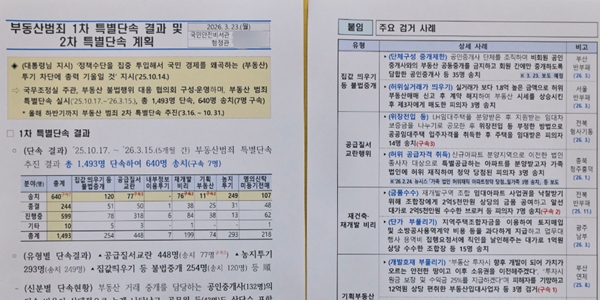 부동산범죄 1차 특별단속 결과 및
2차 특별단속 계획
2026. 3. 23.(월)
국민안전비서관
행정관
(대통령님 지시) '정책수단을 집중 투입해서 국민 경제를 왜곡하는 (부동산)
투기 차단에 총력 기울일 것' 지시('25.10.14.)
국무조정실 주관, 부동산 불법행위 대응 협의회 구성·운영하며, 부동산 범죄
특별단속 실시('25.10.17.~'26.3.15.), 총 1,493명 단속, 640명 송치(7명 구속)
* 올해 하반기까지 부동산 범죄 2차 특별단속 추진(3.16. ~ 10.31.)
□ 1차 특별단속 결과
○ (단속 결과) '25.10.17. ~ '26.3.15.(5개월 간) 부동산범죄 특별단속
추진 결과 총 1,493명 단속하여 640명 송치(구속 7명)
분야(명) 총계 집값 띄우기 등 불법중개 공급질서 교란 내부정보 이용투기 재건축· 재개발 비리 기획 부동산 농지 투기 명의신탁 미등기전매
송치 640 120 77 7 76 11 249 107
종결 244 51 50 1 38 25 31 48
진행중 599 78 318 6 84 38 13 62
기타 10 5 3 - 1 - - 1
총계 1,493 254 448 7 199 74 293 218
○ (유형별 단속현황) • 공급질서교란 448명(송치 77명) • 농지투기
293명(송치 249명) • 집값띄우기 등 불법중개 254명(송치 120명) 등 順
○ (신분별 단속현황) 부동산 거래 중개를 담당하는 공인중개사(132명)의
붙임 주요 검거 사례
유형 상세 사례 비고
집값 띄우기
등 불법중개
(단체구성 중개제한) 공인중개사 단체를 조직하여 비회원 공인
중개사와의 부동산 공동중개를 금지하고 회원 간에만 중개하도록
담합한 공인중개사 등 35명 송치
※ 3. 23. 보도 예정
부산
반부패
(허위실거래가 띄우기) 실거래가 보다 1.8억 높은 금액으로 허위
부동산매매 신고 후 계약 해지하여 부동산 시세를 상승시킨
후 제3자에게 매도한 피의자 3명 송치
서울
반부패
공급질서
교란행위
(위장전입 등) LH임대주택을 분양받은 후 지원받는 임대차
보증금을 나누기로 공모한 후 위장전입 등 부정한 방법으로
공공임대주택 입주자격을 취득한 후 주택을 임대받은 피의자
14명 송치(구속3)
전북
형사기동
(허위 공급자격 취득) 신규아파트 분양지역으로 이전한 법인
종사자 대상으로 특별공급하는 아파트를 분양받고자 가족
법인에 허위 재직하며 청약 당첨된 피의자 3명 송치
충북
청주흥덕
재건축·
재개발 비리
(금품수수) 재개발구역 조합 임대아파트 사업권을 낙찰받기
위해 조합장에게 2억5천만원 상당의 금품을 공여하고 알선
대가로 2억5천만원 수수한 브로커 등 피의자 3명 송치(구속 2)
전북
반부패
(단가 부풀리기) 지역주택조합자금을 이용하여 토지매입용역 및
소방공사용역계약 비용 등을 과다하게 지급하고 업무대행사
용역비 집행요청에 직인을 날인해주는 대가로 1억원
상당 수수한 조합장 등 15명 송치
광주
남부
기획부동산
(개발호재 부풀리기) '부동산 투자시 향후 개발이 되어 가치가
오르는 안전한 땅이고 이후 소유권을 이전해주겠다'. '투자시
원금 보장 및 수익금 25%를 지급하겠다'며 피해자를 기망하고
12억원 상당 편취한 부동산임대사업자 등 9명 검거(구속 1)